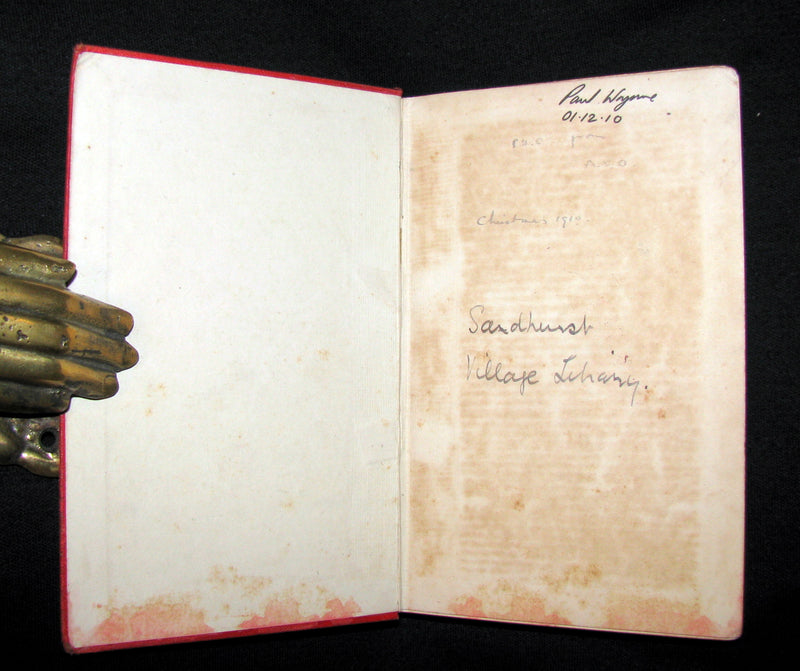 Paul Wayne
01·12·10
Christmas 1910.
Sandhurst
Village Library.